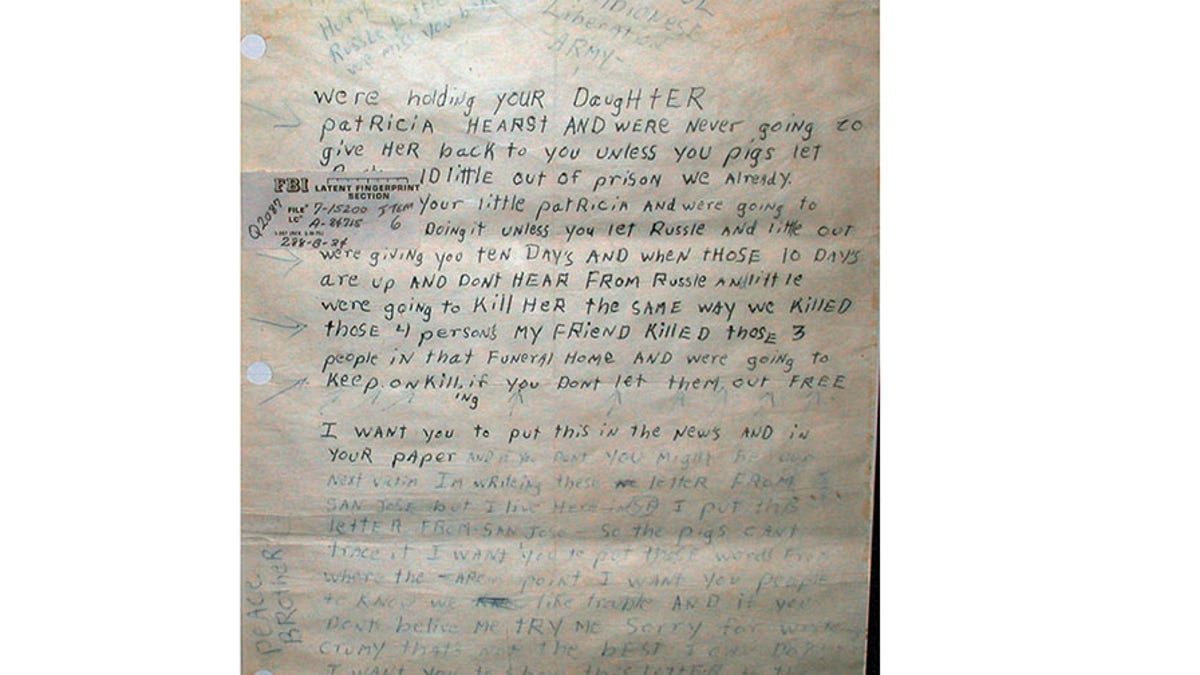 Hurt
Russle Little
we miss you back
Liberation
ARMY-
were holding youR DaugHtER
patRiciA HEARSt AND WERE NeveR going to
give HeR back to you unless you pigs let
10 little out of prison we Already.
FBI LATENT FINGERPRINT SECTION
Q2087
FILE# 7-15200 ITEM
LC# A-84715 6
your little patRicia And were going to
Doing it unless you let Russle AND little out
were giving you tEN DAY's AND wHeN tHOSE 10 DAY's
are up AND DoNt HEAR FROM Russle AN little
were going to Kill HeR the SAME wAy we KillED
thosE 4 person's My FRieND KillED thosE 3
people iN that FuNeRAl HomE AND were going to
Keep oN Kill if you DoNt let them out FREE
'iNg
I WANT you to put this in the News AND in
YouR pApeR AND if you DoNt you Might Be our
Next victim Im wRiteing these letteR FROM
SAN Jose but I live Here in I put this
letteR FRoM SAN Jose So the pigs CANt
trace it I WANT you to put these words FRom
where the ARe point I WANT you people
to KNow we like trouble AND if you
DoNt belive Me tRY Me Sorry for
CRuMy that's Not the bEST I can Do
I WANT you to show this letteR to the
peAce
BRotheR